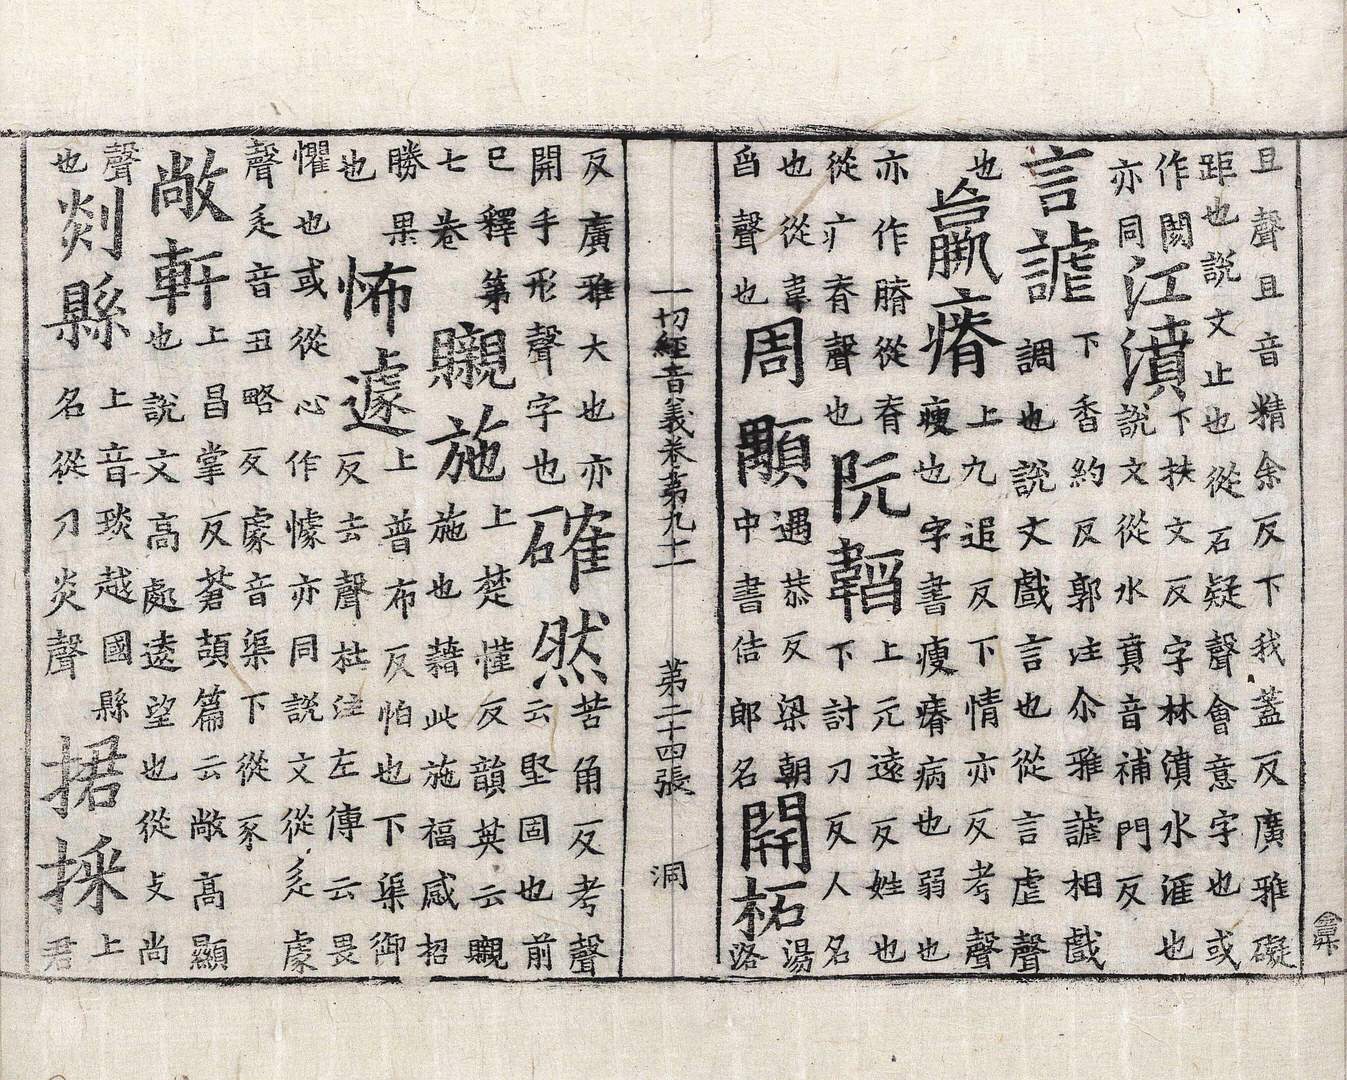 且聲且音精余反下我蓋反廣雅礙
距也說文止也從石疑聲會意字也或
作閡
亦同
江濆
下扶文反字林濆水涯也
說文從水賁音補門反
言謔
下香約反郭注尒雅謔相戲
調也說文戲言也從言虐聲
也
羸瘠
上九追反下情亦反考聲
瘦也字書瘦瘠病也弱也
亦作膌從脊
從疒脊聲也
阮韜
上元遠反姓也
下討刀反人名
也從韋
舀聲也
周顒
遇恭反梁朝
中書侍郎名
開柘
湯
洛
一切經音義卷第九十一 第二十四張 洞
反廣雅大也亦
開手形聲字也
確然
苦角反考聲
云堅固也前
已釋第
七卷
䞋施
上楚慬反韻英云䞋
施也藉此施福感招
勝果
也
怖遽
上普布反怕也下渠御
反去聲杜注左傳云畏
懼也或從心作懅亦同說文從辵豦
聲辵音丑略反豦音渠下從豕
敞軒
上昌掌反蒼頡篇云敞高顯
也說文高處遠望也從攴尚
聲
也
剡縣
上音琰越國縣
名從刀炎聲
捃採
上
君